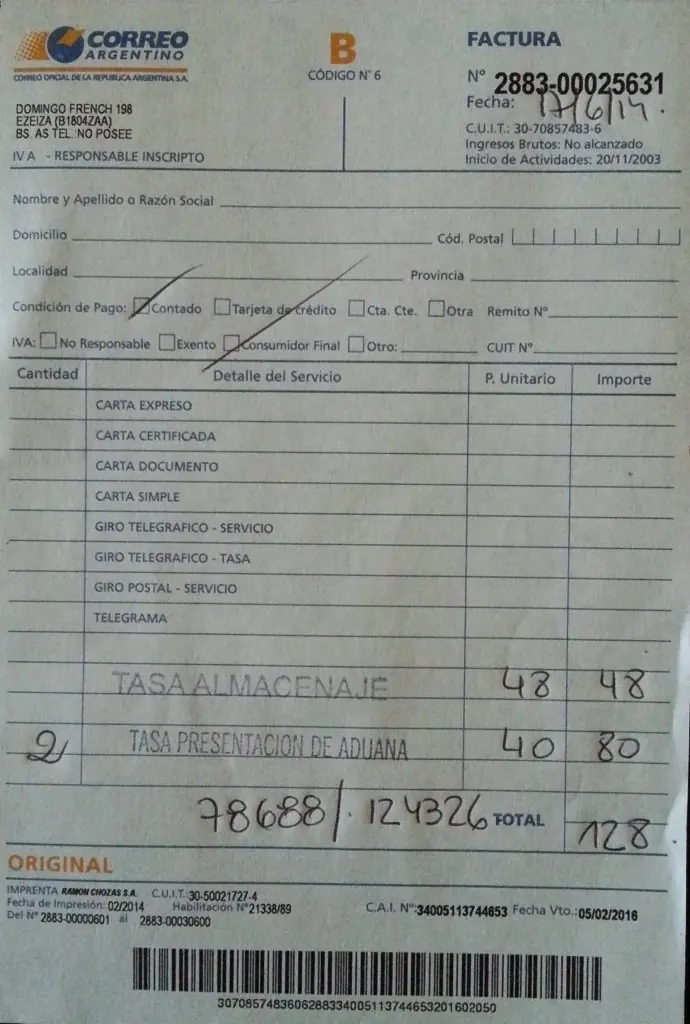 CORREO ARGENTINO
CORREO OFICIAL DE LA REPUBLICA ARGENTINA S.A.
DOMINGO FRENCH 198
EZEIZA (B1804ZAA)
BS. AS TEL.:NO POSEE
IVA - RESPONSABLE INSCRIPTO
B
CÓDIGO N° 6
FACTURA
N° 2883-00025631
Fecha: 17/6/14.
C.U.I.T.: 30-70857483-6
Ingresos Brutos: No alcanzado
Inicio de Actividades: 20/11/2003
Nombre y Apellido o Razón Social
Domicilio Cód. Postal
Localidad Provincia
Condición de Pago: Contado Tarjeta de crédito Cta. Cte. Otra Remito N°
IVA: No Responsable Exento Consumidor Final Otro: CUIT N°
Cantidad Detalle del Servicio P. Unitario Importe
CARTA EXPRESO
CARTA CERTIFICADA
CARTA DOCUMENTO
CARTA SIMPLE
GIRO TELEGRAFICO - SERVICIO
GIRO TELEGRAFICO - TASA
GIRO POSTAL - SERVICIO
TELEGRAMA
TASA ALMACENAJE 48 48
2 TASA PRESENTACION DE ADUANA 40 80
78688/. 124326 TOTAL 128.
ORIGINAL
IMPRENTA RAMON CHOZAS S.A. C.U.I.T.:30-50021727-4
Fecha de Impresión: 02/2014 Habilitación N°21338/89 C.A.I. N°:34005113744653 Fecha Vto.:05/02/2016
Del N° 2883-00000601 al 2883-00030600
3070857483606288334005113744653201602050